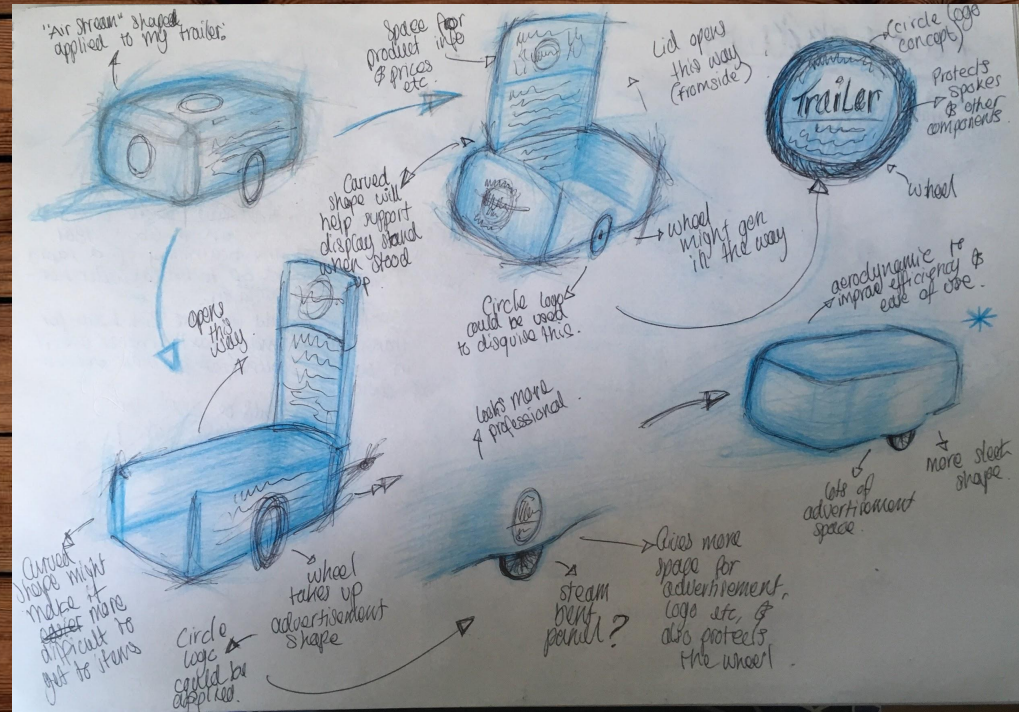 "Air Stream" shaped
applied to my trailer.
Space for
product info
& prices
etc.
Lid opens
this way
(from side)
(circle logo
concept)
Trailer
Protects
spokes
& other
components.
wheel
Carved
shape will
help support
display stand
when stood
up
wheel
might get
in the way
Circle logo
could be used
to disguise this.
aerodynamic to
improve efficiency &
ease of use.
opens
this
way
looks more
professional.
more sleek
shape.
lots of
advertisement
space.
Curved
shape might
make it
more
difficult to
get to items
wheel
takes up
advertisement
shape
Circle
logo
could be
applied.
steam
bent
pannel?
Gives more
space for
advertisement,
logo etc, &
also protects
the wheel.